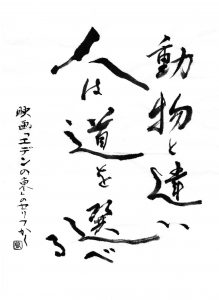 動物と違い
人は道を選べ
る
映画「エデンの東」のセリフから